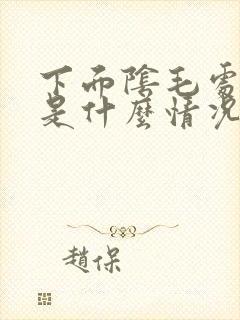 下而陰毛處
是什麼情況
趙保